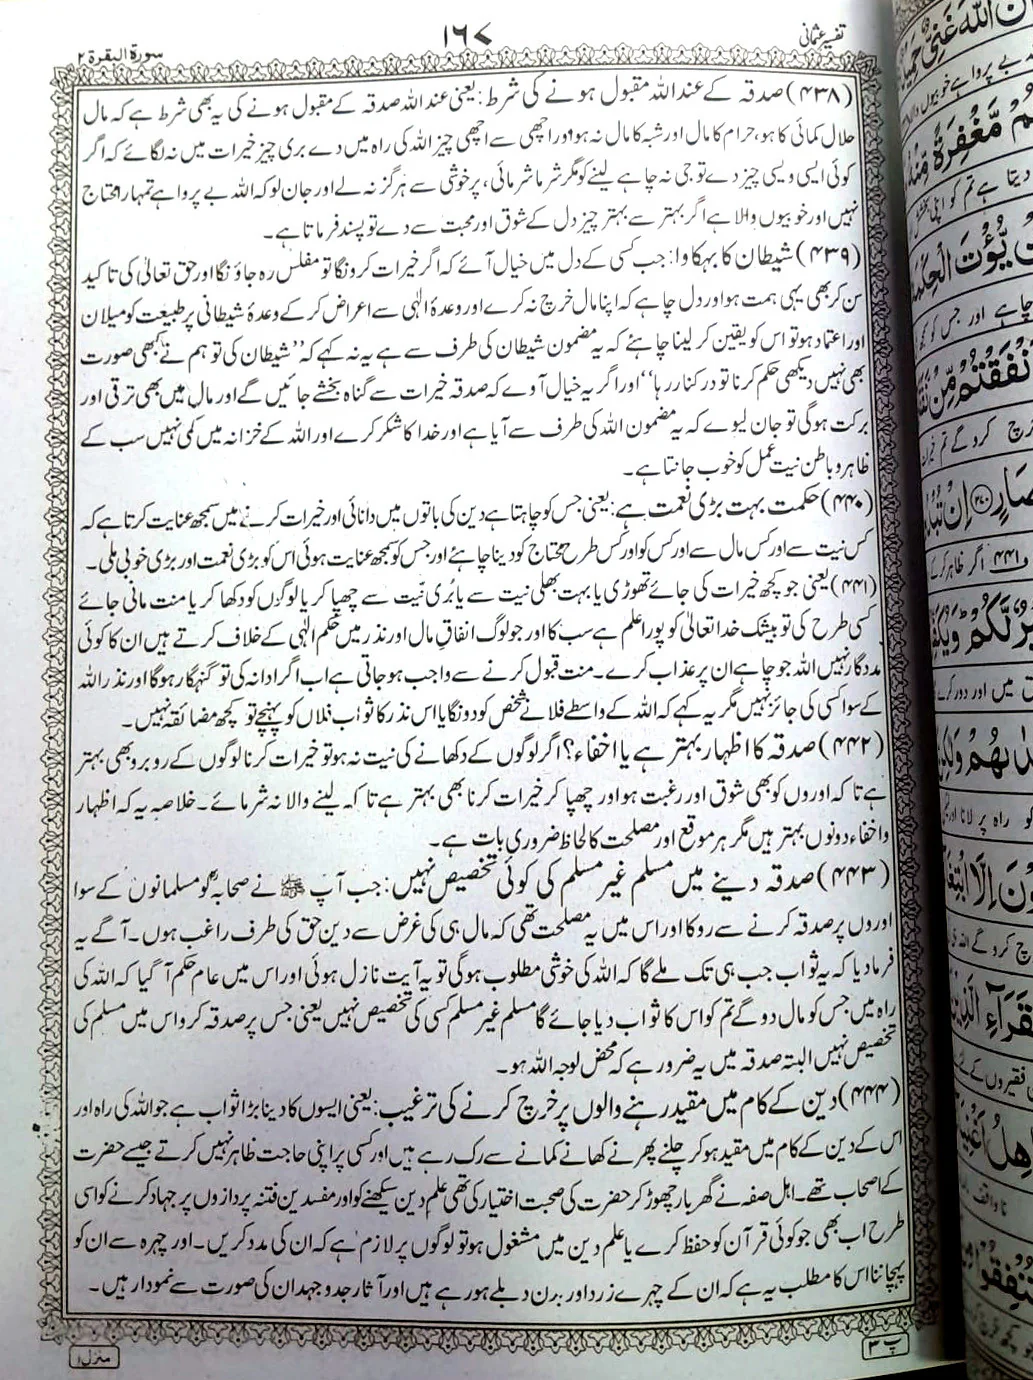 تفسیر عثمانی
۱۶۷
سورۃ البقرۃ ۲
(۴۳۸) صدقہ کے عنداللہ مقبول ہونے کی شرط: یعنی عنداللہ صدقہ کے مقبول ہونے کی یہ بھی شرط ہے کہ مال
حلال کمائی کا ہو، حرام کا مال اور شبہ کا مال نہ ہو اور اچھی سے اچھی چیز اللہ کی راہ میں دے بری چیز خیرات میں نہ لگائے کہ اگر
کوئی ایسی ویسی چیز دے تو جی نہ چاہے لینے کو مگر شرما شرمائی، پر خوشی سے ہرگز نہ لے اور جان لو کہ اللہ بے پروا ہے تمہارا محتاج
نہیں اور خوبیوں والا ہے اگر بہتر سے بہتر چیز دل کے شوق اور محبت سے دے تو پسند فرماتا ہے۔
(۴۳۹) شیطان کا بہکاوا: جب کسی کے دل میں خیال آئے کہ اگر خیرات کرونگا تو مفلس رہ جاؤنگا اور حق تعالیٰ کی تاکید
سن کر بھی یہی ہمت ہو اور دل چاہے کہ اپنا مال خرچ نہ کرے اور وعدۂ الٰہی سے اعراض کر کے وعدۂ شیطانی پر طبیعت کو میلان
اور اعتماد ہو تو اس کو یقین کر لینا چاہئے کہ یہ مضمون شیطان کی طرف سے ہے یہ نہ کہے کہ ’’شیطان کی تو ہم نے کبھی صورت
بھی نہیں دیکھی حکم کرنا تو درکنار رہا‘‘ اور اگر یہ خیال آوے کہ صدقہ خیرات سے گناہ بخشے جائیں گے اور مال میں بھی ترقی اور
برکت ہوگی تو جان لیوے کہ یہ مضمون اللہ کی طرف سے آیا ہے اور خدا کا شکر کرے اور اللہ کے خزانہ میں کمی نہیں سب کے
ظاہر و باطن نیت عمل کو خوب جانتا ہے۔
(۴۴۰) حکمت بہت بڑی نعمت ہے: یعنی جس کو چاہتا ہے دین کی باتوں میں دانائی اور خیرات کرنے میں سمجھ عنایت کرتا ہے کہ
کس نیت سے اور کس مال سے اور کس کو اور کس طرح محتاج کو دینا چاہئے اور جس کو سمجھ عنایت ہوئی اس کو بڑی نعمت اور بڑی خوبی ملی۔
(۴۴۱) یعنی جو کچھ خیرات کی جائے تھوڑی یا بہت بھلی نیت سے یا بُری نیّت سے چھپا کر یا لوگوں کو دکھا کر یا منت مانی جائے
کسی طرح کی تو بیشک خدا تعالیٰ کو پورا علم ہے سب کا اور جو لوگ انفاق مال اور نذر میں حکم الٰہی کے خلاف کرتے ہیں ان کا کوئی
مددگار نہیں اللہ جو چاہے ان پر عذاب کرے۔ منت قبول کرنے سے واجب ہو جاتی ہے اب اگر ادا نہ کی تو گنہگار ہوگا اور نذر اللہ
کے سوا کسی کی جائز نہیں مگر یہ کہے کہ اللہ کے واسطے فلانے شخص کو دونگا یا اس نذر کا ثواب فلاں کو پہنچے تو کچھ مضائقہ نہیں۔
(۴۴۲) صدقہ کا اظہار بہتر ہے یا اخفاء؟ اگر لوگوں کے دکھانے کی نیت نہ ہو تو خیرات کرنا لوگوں کے روبرو بھی بہتر
ہے تا کہ اوروں کو بھی شوق اور رغبت ہو اور چھپا کر خیرات کرنا بھی بہتر ہے تا کہ لینے والا نہ شرمائے۔ خلاصہ یہ کہ اظہار
و اخفاء دونوں بہتر ہیں مگر ہر موقع اور مصلحت کا لحاظ ضروری بات ہے۔
(۴۴۳) صدقہ دینے میں مسلم غیر مسلم کی کوئی تخصیص نہیں: جب آپ ﷺ نے صحابہؓ کو مسلمانوں کے سوا
اوروں پر صدقہ کرنے سے روکا اور اس میں یہ مصلحت تھی کہ مال ہی کی غرض سے دین حق کی طرف راغب ہوں۔ آگے یہ
فرما دیا کہ یہ ثواب جب ہی تک ملے گا کہ اللہ کی خوشی مطلوب ہوگی تو یہ آیت نازل ہوئی اور اس میں عام حکم آ گیا کہ اللہ کی
راہ میں جس کو مال دو گے تم کو اس کا ثواب دیا جائے گا مسلم غیر مسلم کسی کی تخصیص نہیں یعنی جس پر صدقہ کرو اس میں مسلم کی
تخصیص نہیں البتہ صدقہ میں یہ ضرور ہے کہ محض لوجہ اللہ ہو۔
(۴۴۴) دین کے کام میں مقید رہنے والوں پر خرچ کرنے کی ترغیب: یعنی ایسوں کا دینا بڑا ثواب ہے جو اللہ کی راہ اور
اس کے دین کے کام میں مقید ہو کر چلنے پھرنے کھانے کمانے سے رک رہے ہیں اور کسی پر اپنی حاجت ظاہر نہیں کرتے جیسے حضرت
کے اصحاب تھے۔ اہل صفہ نے گھر بار چھوڑ کر حضرت کی صحبت اختیار کی تھی علم دین سیکھنے کو اور مفسدین فتنہ پردازوں پر جہاد کرنے کو اسی
طرح اب بھی جو کوئی قرآن کو حفظ کرے یا علم دین میں مشغول ہو تو لوگوں پر لازم ہے کہ ان کی مدد کریں۔ اور چہرہ سے ان کو
پہچاننا اس کا مطلب یہ ہے کہ ان کے چہرے زرد اور بدن دبلے ہو رہے ہیں اور آثار جدوجہد ان کی صورت سے نمودار ہیں۔
پ ۳
منزل ۱